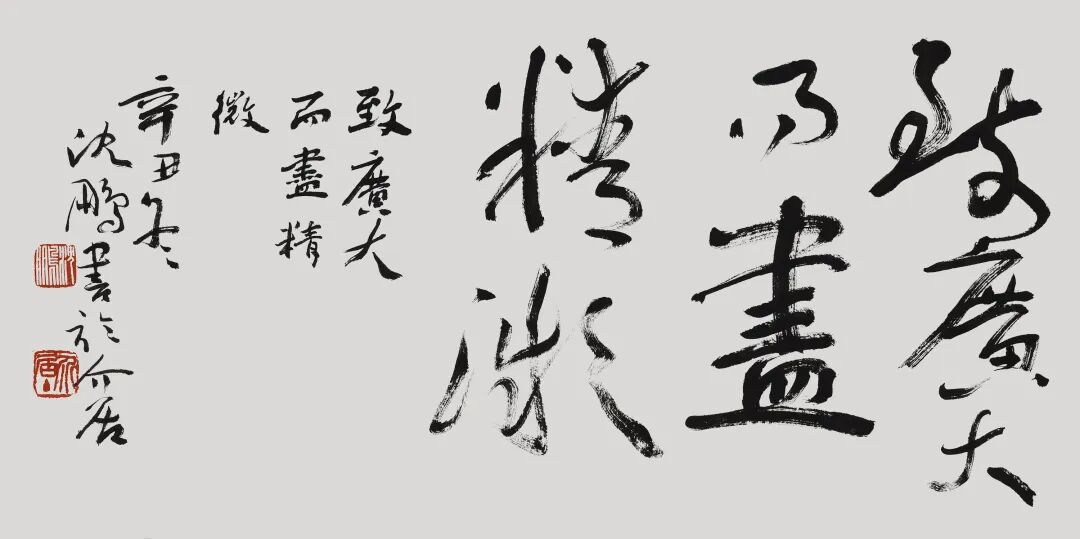 致廣大
而盡
精微
致廣大
而盡精
微
辛丑冬
沈鵬書於介居